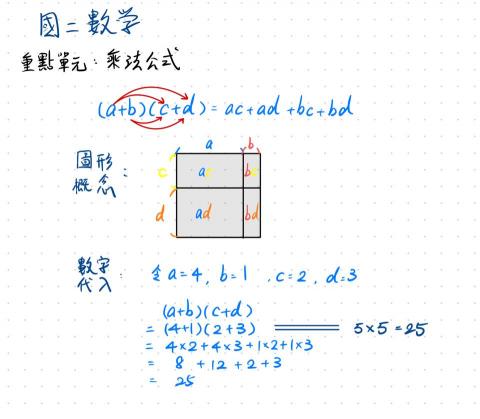 國二數學
重點單元：乘法公式
(a+b)(c+d) = ac+ad+bc+bd
圖形
概念：
a b
c ac bc
d ad bd
數字
代入：
令 a=4, b=1, c=2, d=3
(a+b)(c+d)
= (4+1)(2+3) ═══ 5×5=25
= 4×2+4×3+1×2+1×3
= 8+12+2+3
= 25